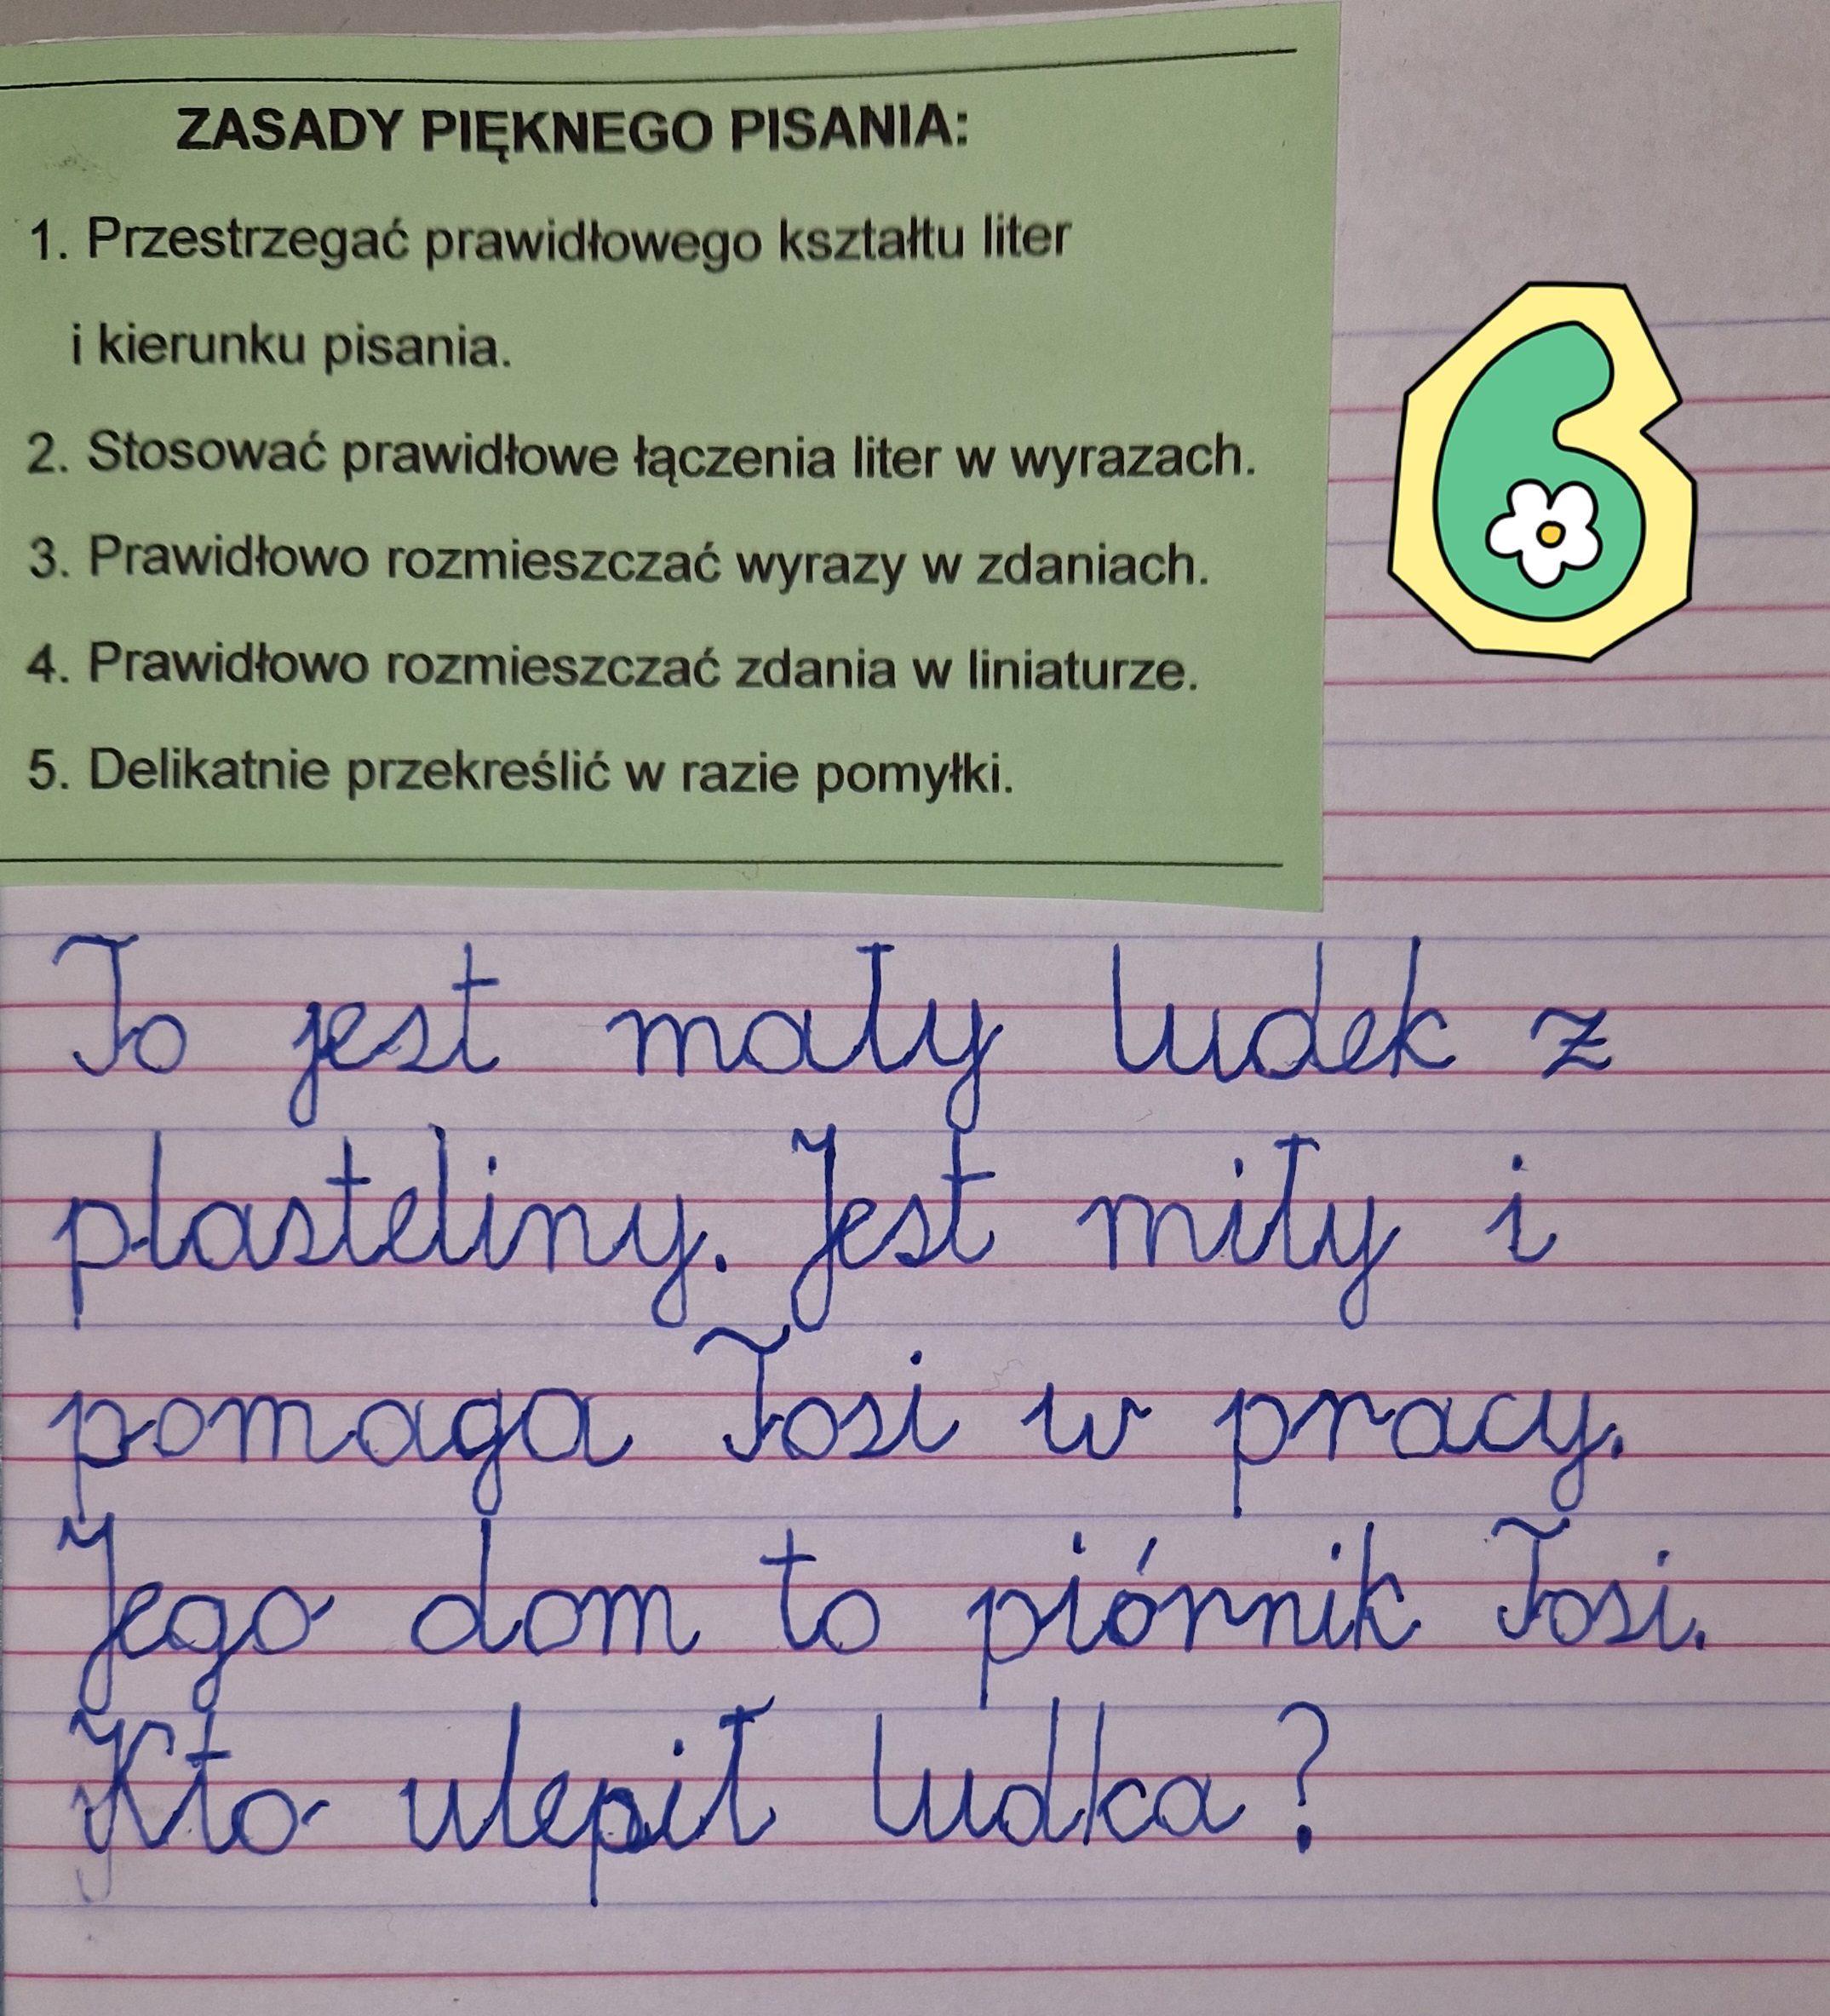 ZASADY PIĘKNEGO PISANIA:
1. Przestrzegać prawidłowego kształtu liter
i kierunku pisania.
2. Stosować prawidłowe łączenia liter w wyrazach.
3. Prawidłowo rozmieszczać wyrazy w zdaniach.
4. Prawidłowo rozmieszczać zdania w liniaturze.
5. Delikatnie przekreślić w razie pomyłki.
6
To jest mały ludek z
plasteliny. Jest miły i
pomaga Tosi w pracy.
Jego dom to piórnik Tosi.
Kto ulepił ludka?